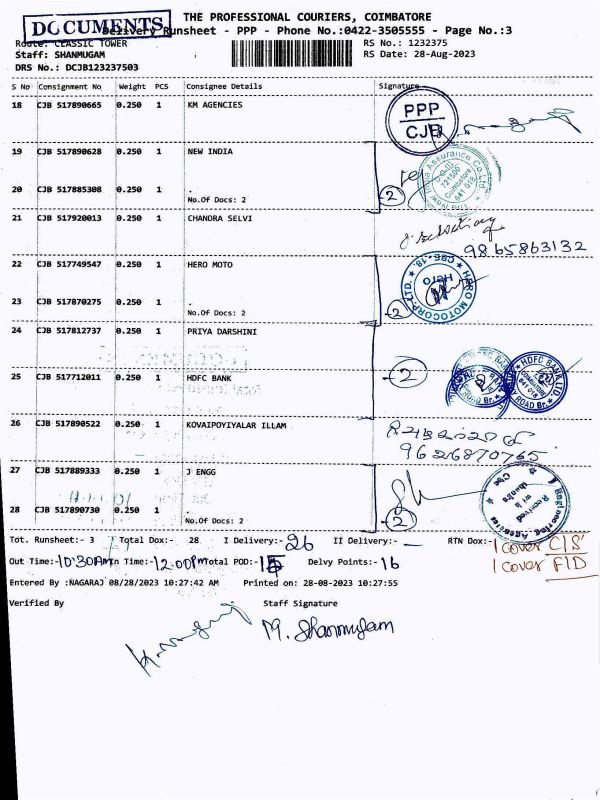 DOCUMENTS
THE PROFESSIONAL COURIERS, COIMBATORE
Delivery Runsheet - PPP - Phone No.:0422-3505555 - Page No.:3
Route: CLASSIC TOWER RS No.: 1232375
Staff: SHANMUGAM RS Date: 28-Aug-2023
DRS No.: DCJB123237503
S No Consignment No Weight PCS Consignee Details Signature
18 CJB 517890665 0.250 1 KM AGENCIES
PPP
CJB
19 CJB 517890628 0.250 1 NEW INDIA
20 CJB 517885308 0.250 1 .
No.Of Docs: 2
2
The New India Assurance Co. Ltd.
721500
Coimbatore
641 018
21 CJB 517920013 0.250 1 CHANDRA SELVI
9865863132
22 CJB 517749547 0.250 1 HERO MOTO
23 CJB 517870275 0.250 1 .
No.Of Docs: 2
2
HERO MOTOCORP LTD. ★ CBE-18. ★
Hero
24 CJB 517812737 0.250 1 PRIYA DARSHINI
25 CJB 517712011 0.250 1 HDFC BANK
2
★ HDFC BANK LTD. ★
Coimbatore
641 018
ROAD Br.
26 CJB 517890522 0.250 1 KOVAIPOYIYALAR ILLAM
9626870765
27 CJB 517889333 0.250 1 J ENGG
28 CJB 517890730 0.250 1 .
No.Of Docs: 2
2
Tot. Runsheet:- 3 Total Dox:- 28 I Delivery:- 26 II Delivery:- — RTN Dox:- 1 cover C/S'
Out Time:- 10:30Am In Time:- 12.00pm Total POD:- 15 Delvy Points:- 16 1 cover F/D
Entered By :NAGARAJ 08/28/2023 10:27:42 AM Printed on: 28-08-2023 10:27:55
Verified By Staff Signature
M. Shanmugam